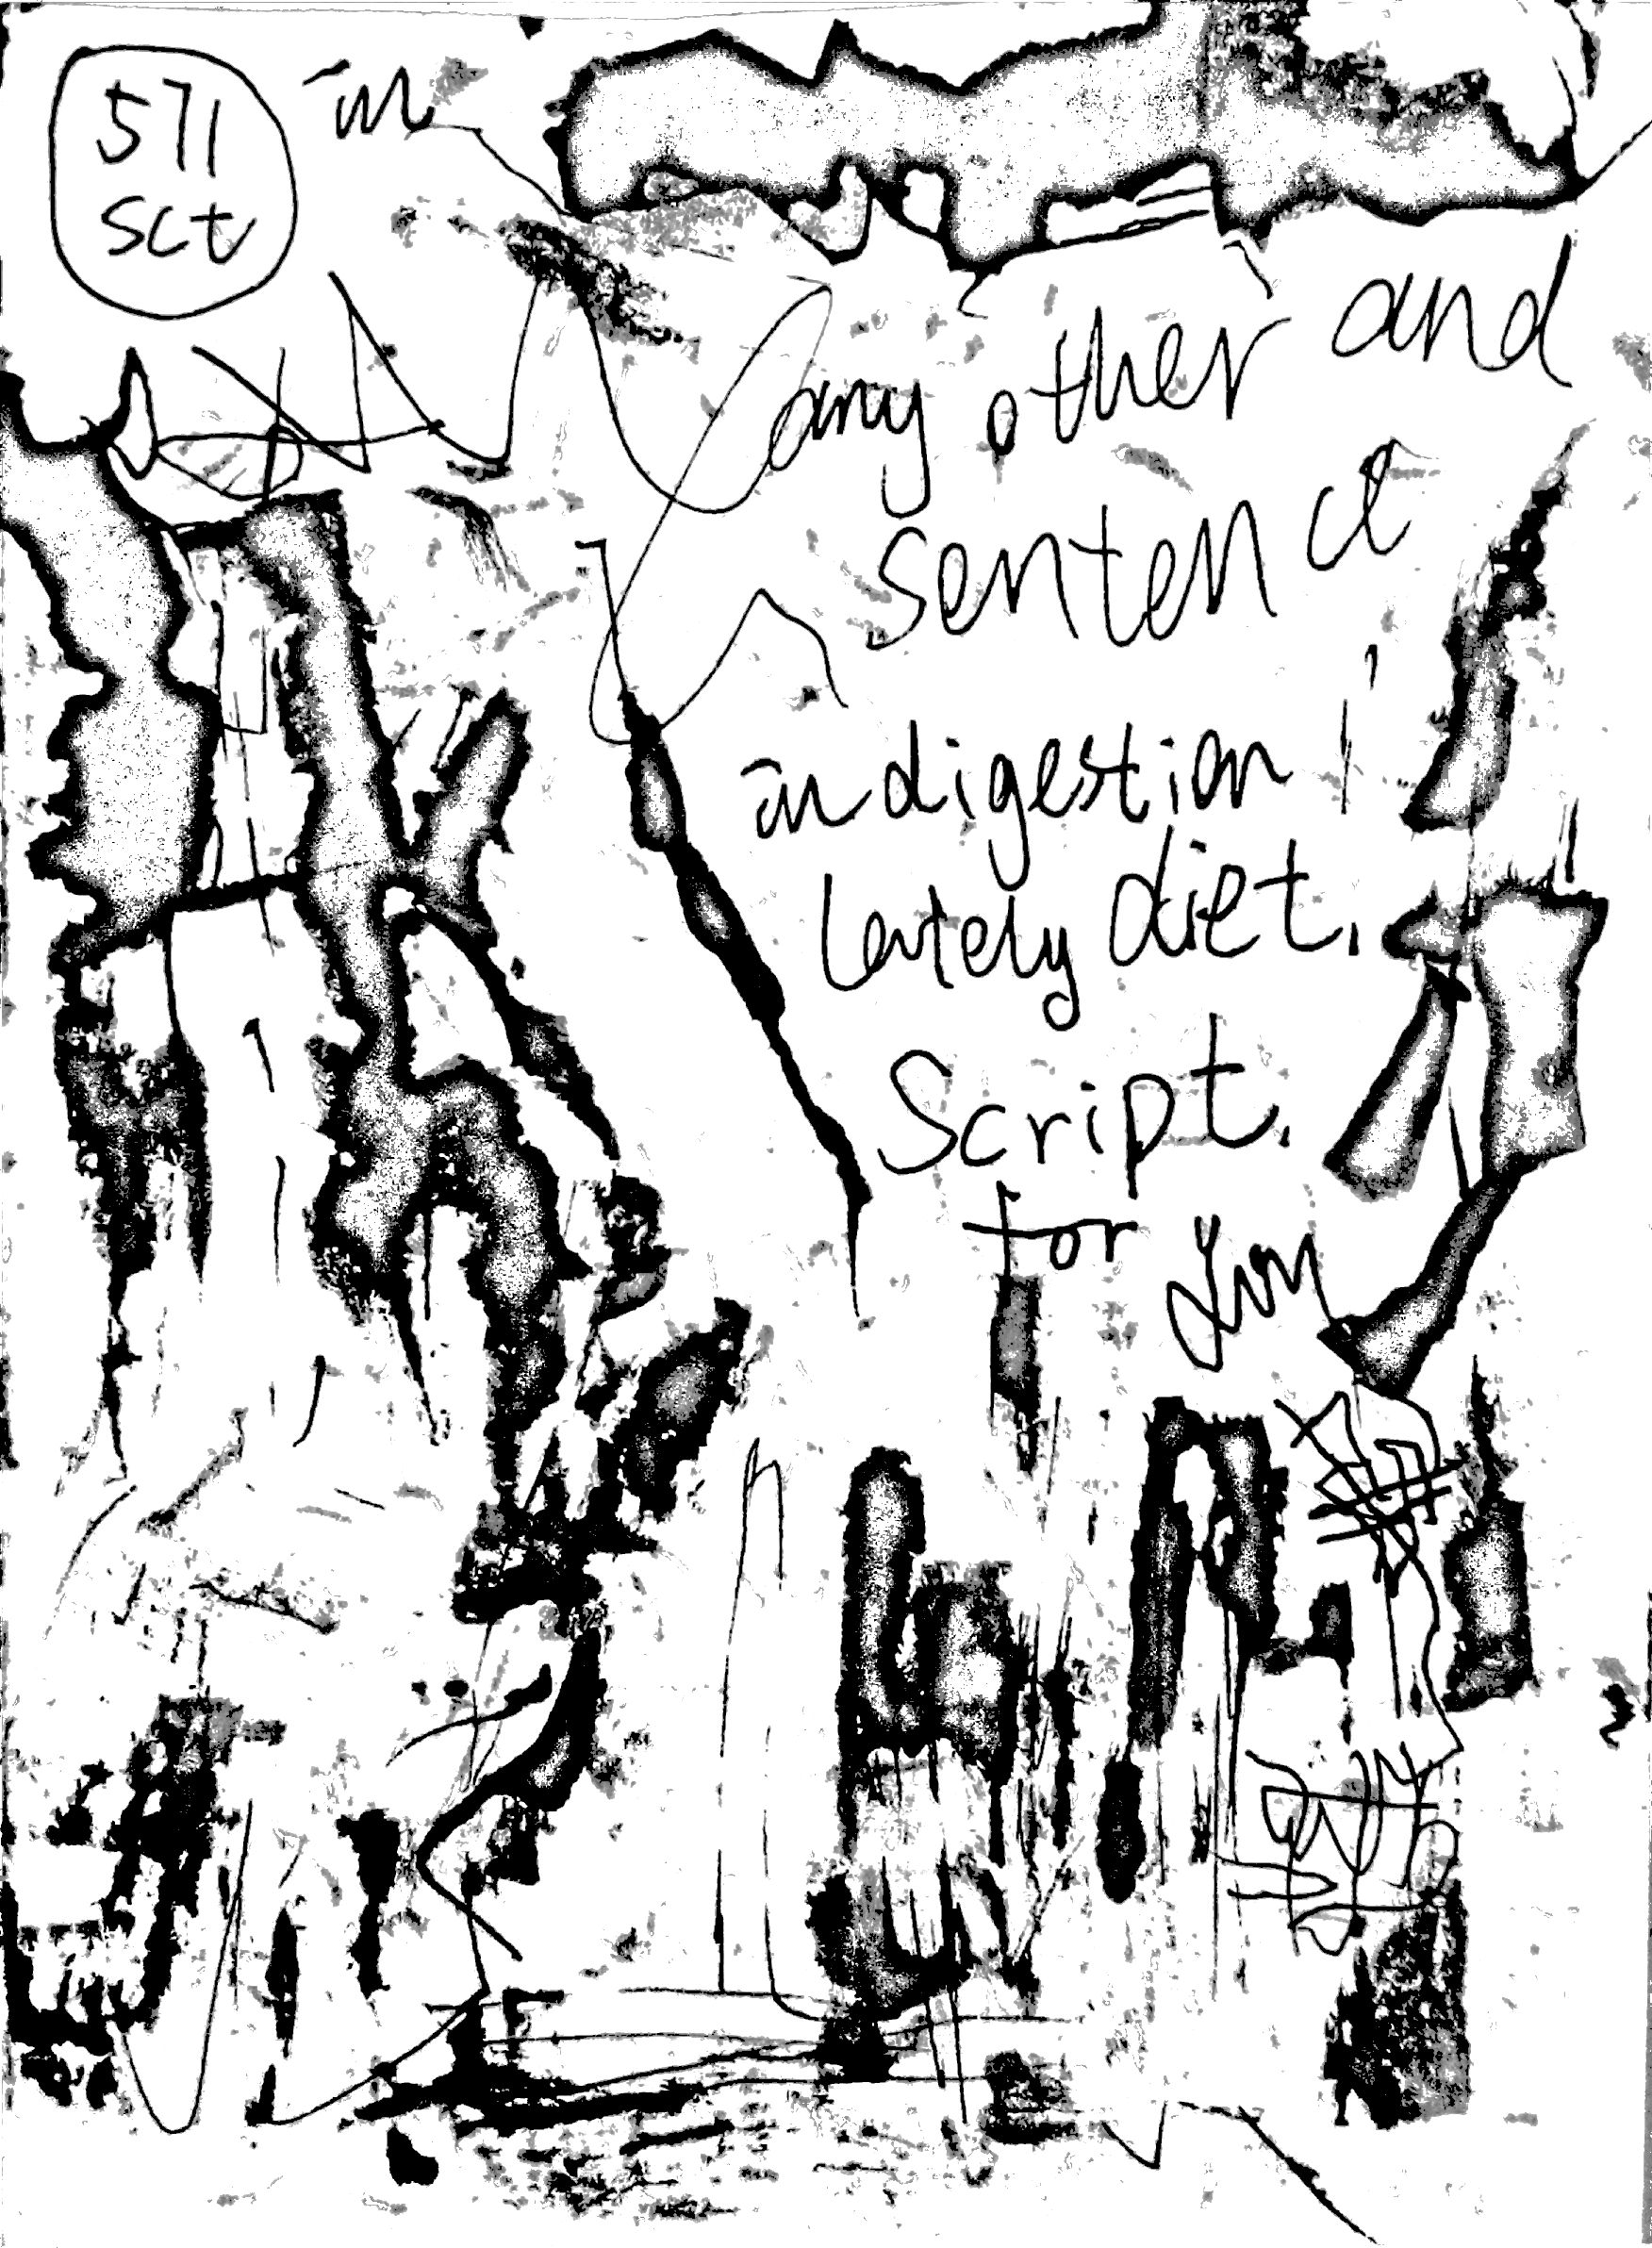 571
sct
in
any other and
sentence
indigestion!
lately diet.
Script.
for